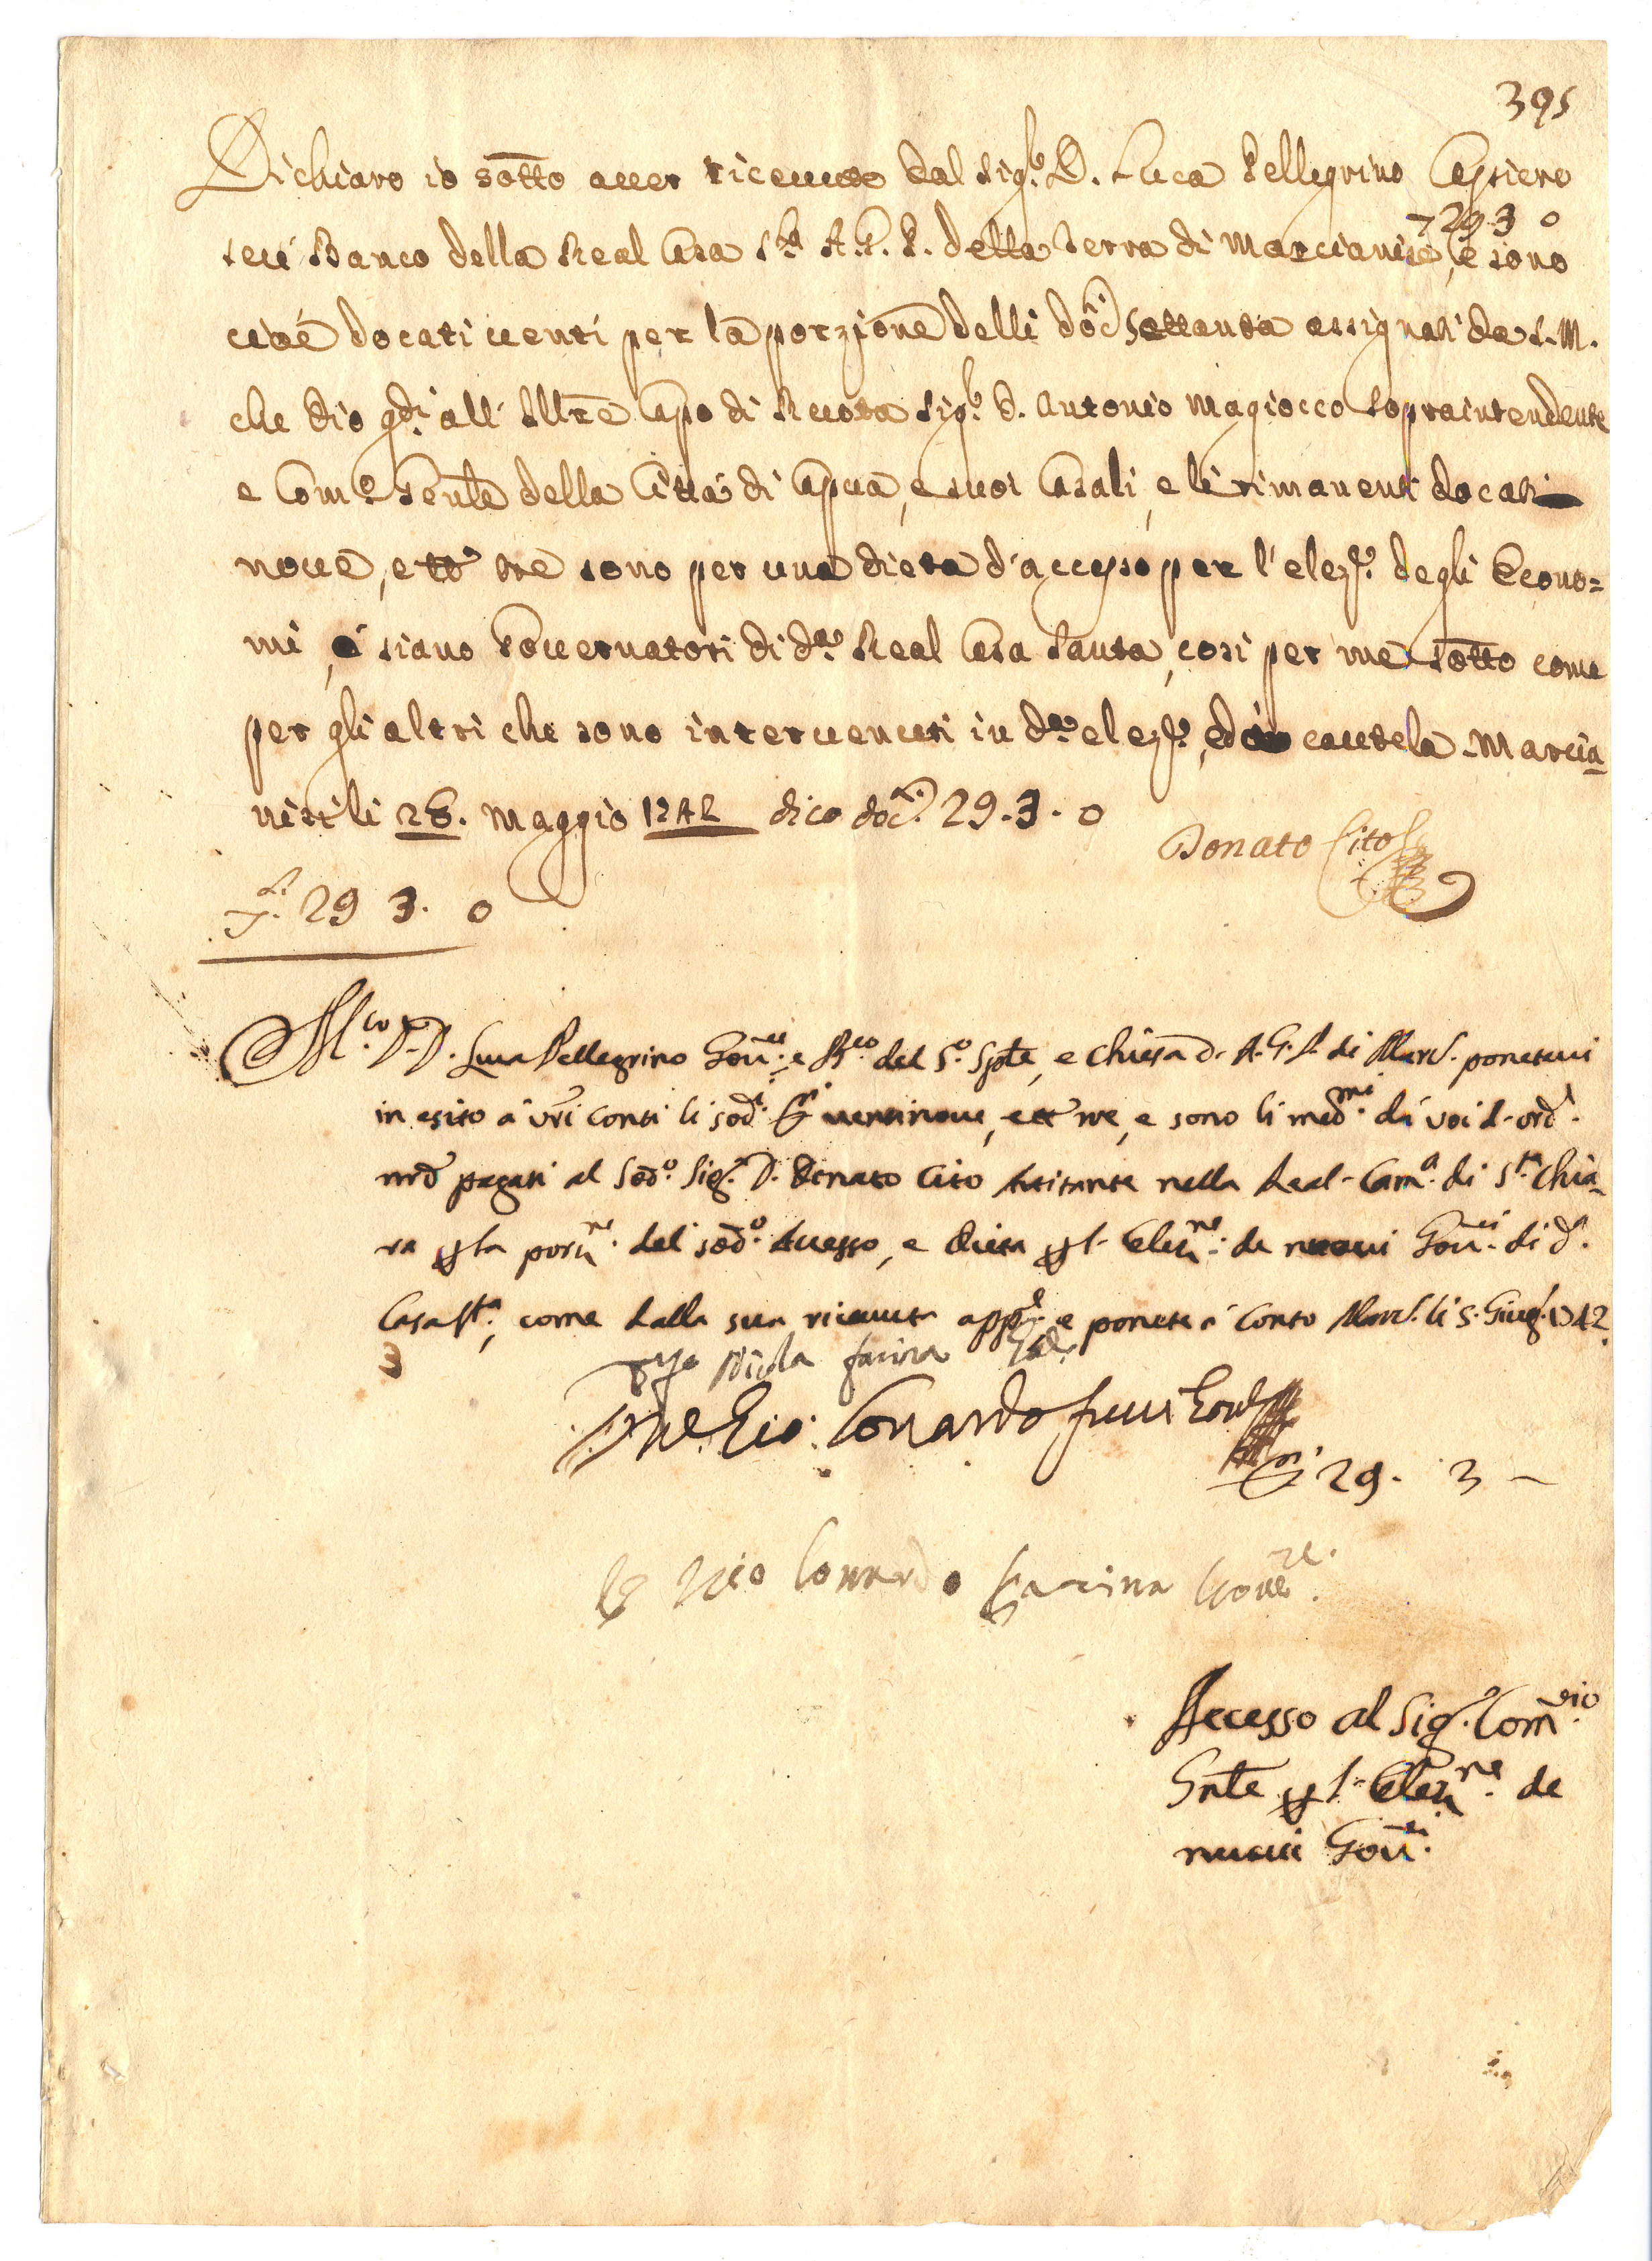 395
Dichiaro io sotto aver ricevuto dal Sig.re D. Luca Pellegrino Cassiero
seu Banco della Real Casa S.ta A.G.P. della Terra di Marcianise, e sono
29 3 0
cioè docati venti per la porzione delli doc.i settanta assignati da S.M.
che Dio g.di all' Ill.re Capo di Ruota Sig.r D. Antonio Magiocco Sopraintendente
e Com.o Gen.le della Città di Capua, e suoi Casali, e li rimanenti docati
nove, e tt.i tre sono per una dieta d'accesso per l'elez.e degli Econo=
mi, ò siano Governatori di d.a Real Casa Santa, così per me sotto come
per gli altri che sono intervenuti in d.a elez.e, ed à cautela Marcia
nisi li 28. Maggio 1742 dico doc.i 29.3.0
Donato Cito
29 3. 0
M.co D.D. Luca Pellegrino Gov.re e B.co del S.o Sp.te, e Chiesa d. A.G.P. di Marc. ponetevi
in esito à v.ri conti li sod.i ventinove, e tt. tre, e sono li med.mi da voi d. ord.
nro pagati al Sod.o Sig.r D. Donato Cito Attitante nella Real Cam.a di S.ta Chia-
ra p la porz.ne del sod.o Accesso, e dieta p l. Elez.ne de nuovi Gov.ri di d.a
Casa S.ta, come dalla sua ricevuta app.e e ponete à conto Marc. li 5. Giug. 1742
Nicola farina
Gio: Conardo Gov.
29. 3 –
Conardo farina Gov.re
Accesso al Sig.r Com.rio
Gn.le p l. Elez.ne de
nuovi Gov.ri